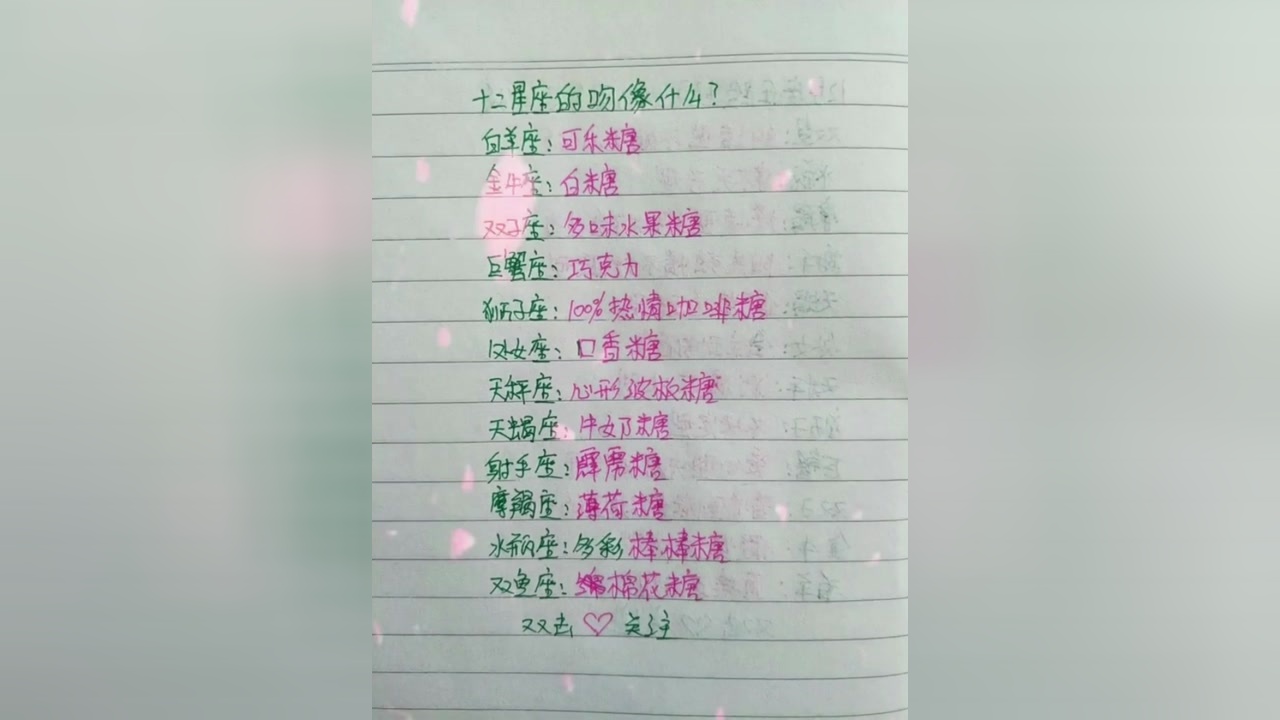 十二星座的吻像什么?
白羊座:可乐糖
金牛座:白糖
双子座:多味水果糖
巨蟹座:巧克力
狮子座:100%热情咖啡糖
处女座:口香糖
天秤座:心形波板糖
天蝎座:牛奶糖
射手座:霹雳糖
摩羯座:薄荷糖
水瓶座:多彩棒棒糖
双鱼座:棉花糖
双击♡关注